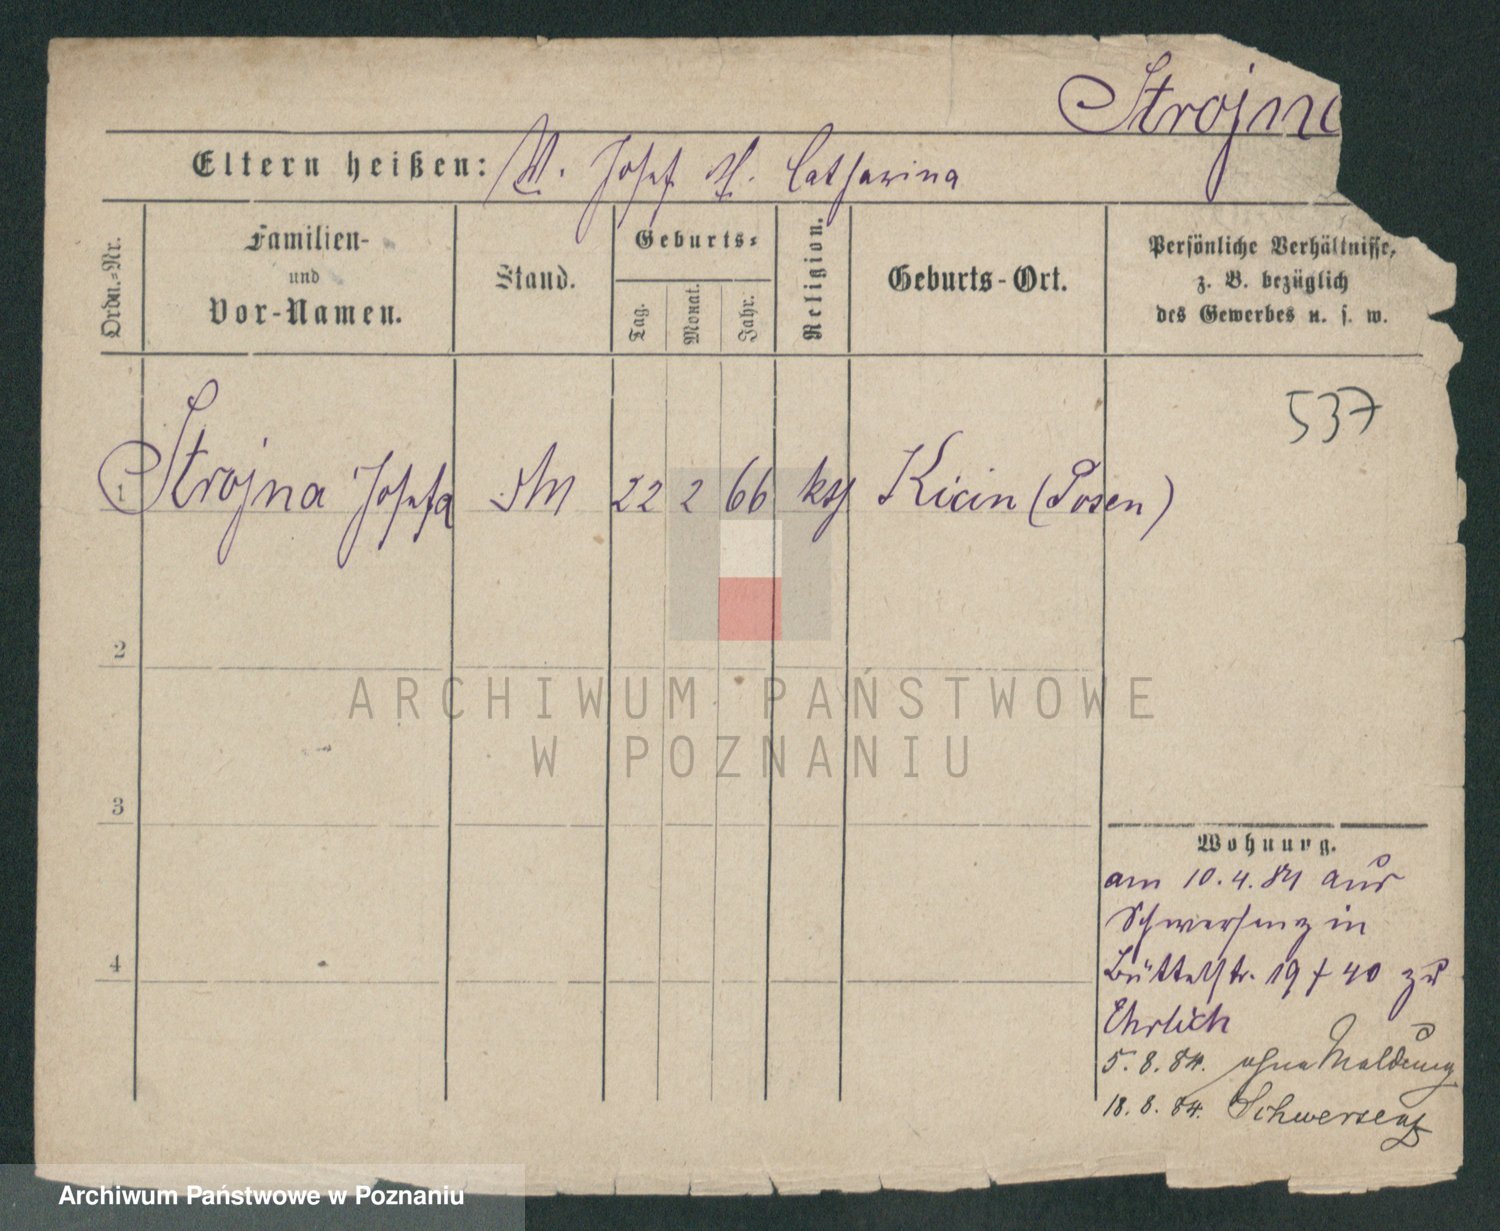 Strojn
Eltern heißen: V. Josef M. Catharina
Ordn.-Nr.
Familien-
und
Vor-Namen.
Stand.
Geburts-
Tag.
Monat.
Jahr.
Religion.
Geburts-Ort.
Persönliche Verhältnisse,
z. B. bezüglich
des Gewerbes u. s. w.
537
1 Strojna Josefa 22 2 66 kth Kicin (Posen)
2
3
4
Wohnung.
am 10.4.84 aus
Schwersenz in
Büttelstr. 19 40 zu
Ehrlich
5.8.84. ohne Meldung
18.8.84. Schwersenz
ARCHIWUM PAŃSTWOWE
W POZNANIU
Archiwum Państwowe w Poznaniu